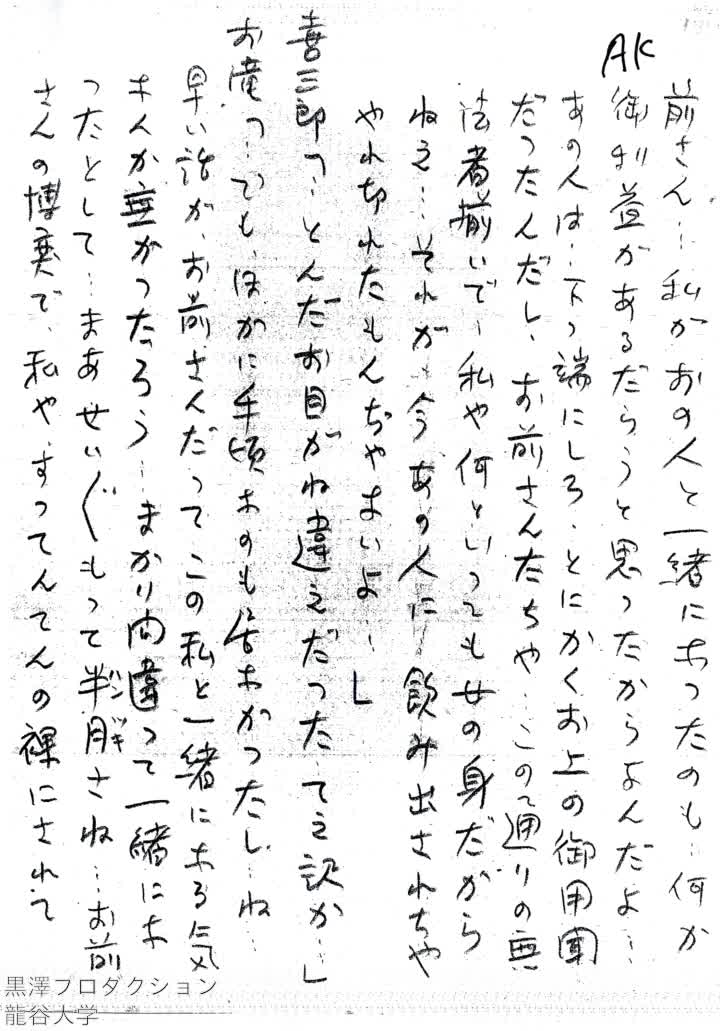 前さん…私があの人と一緒になつたのも…何か
AK
御利益があるだらうと思つたからなんだよ…
あの人は…下つ端にしろ、とにかくお上の御用聞
だつたんだし、お前さんたちや…この通りの無
法者揃いで、私や何といつても女の身だから
ねえ…それが、今あの人に飲み出されちや
やれ切れたもんぢやないよ…」
喜三郎「…とんだお目がね違えだつた…てえ訳か…」
お滝「…でも、ほかに手頃なのも居なかつたし…ね…
早い話が、お前さんだつてこの私と一緒になる気
なんか無かつたろう…まかり間違つて一緒にな
つたとして…まあせい〲もつて半ン月ギさね…お前
さんの博奕で、私や、すつてんてんの裸にされて
黒澤プロダクション
龍谷大学